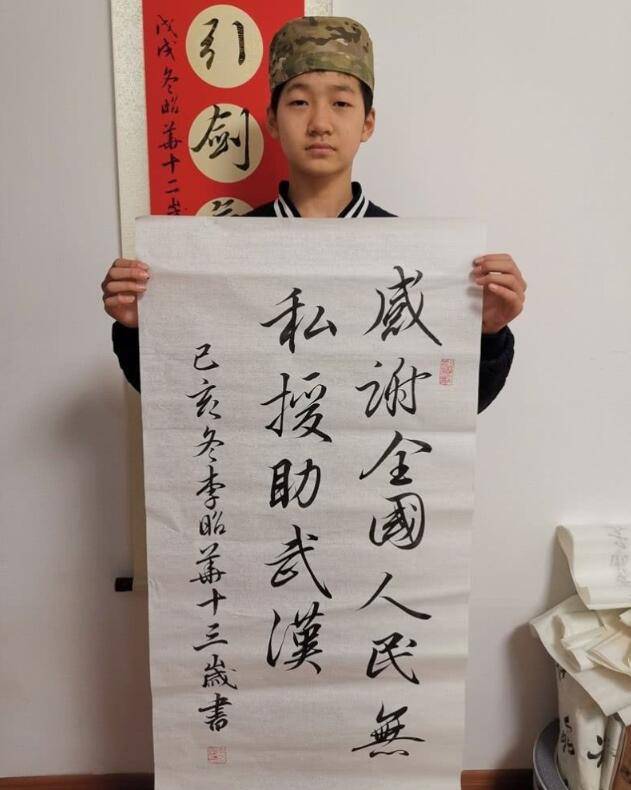 感謝全國人民無
私援助武漢
己亥冬李昭華十三歲書
引劍
戊戌冬昭華十二歲